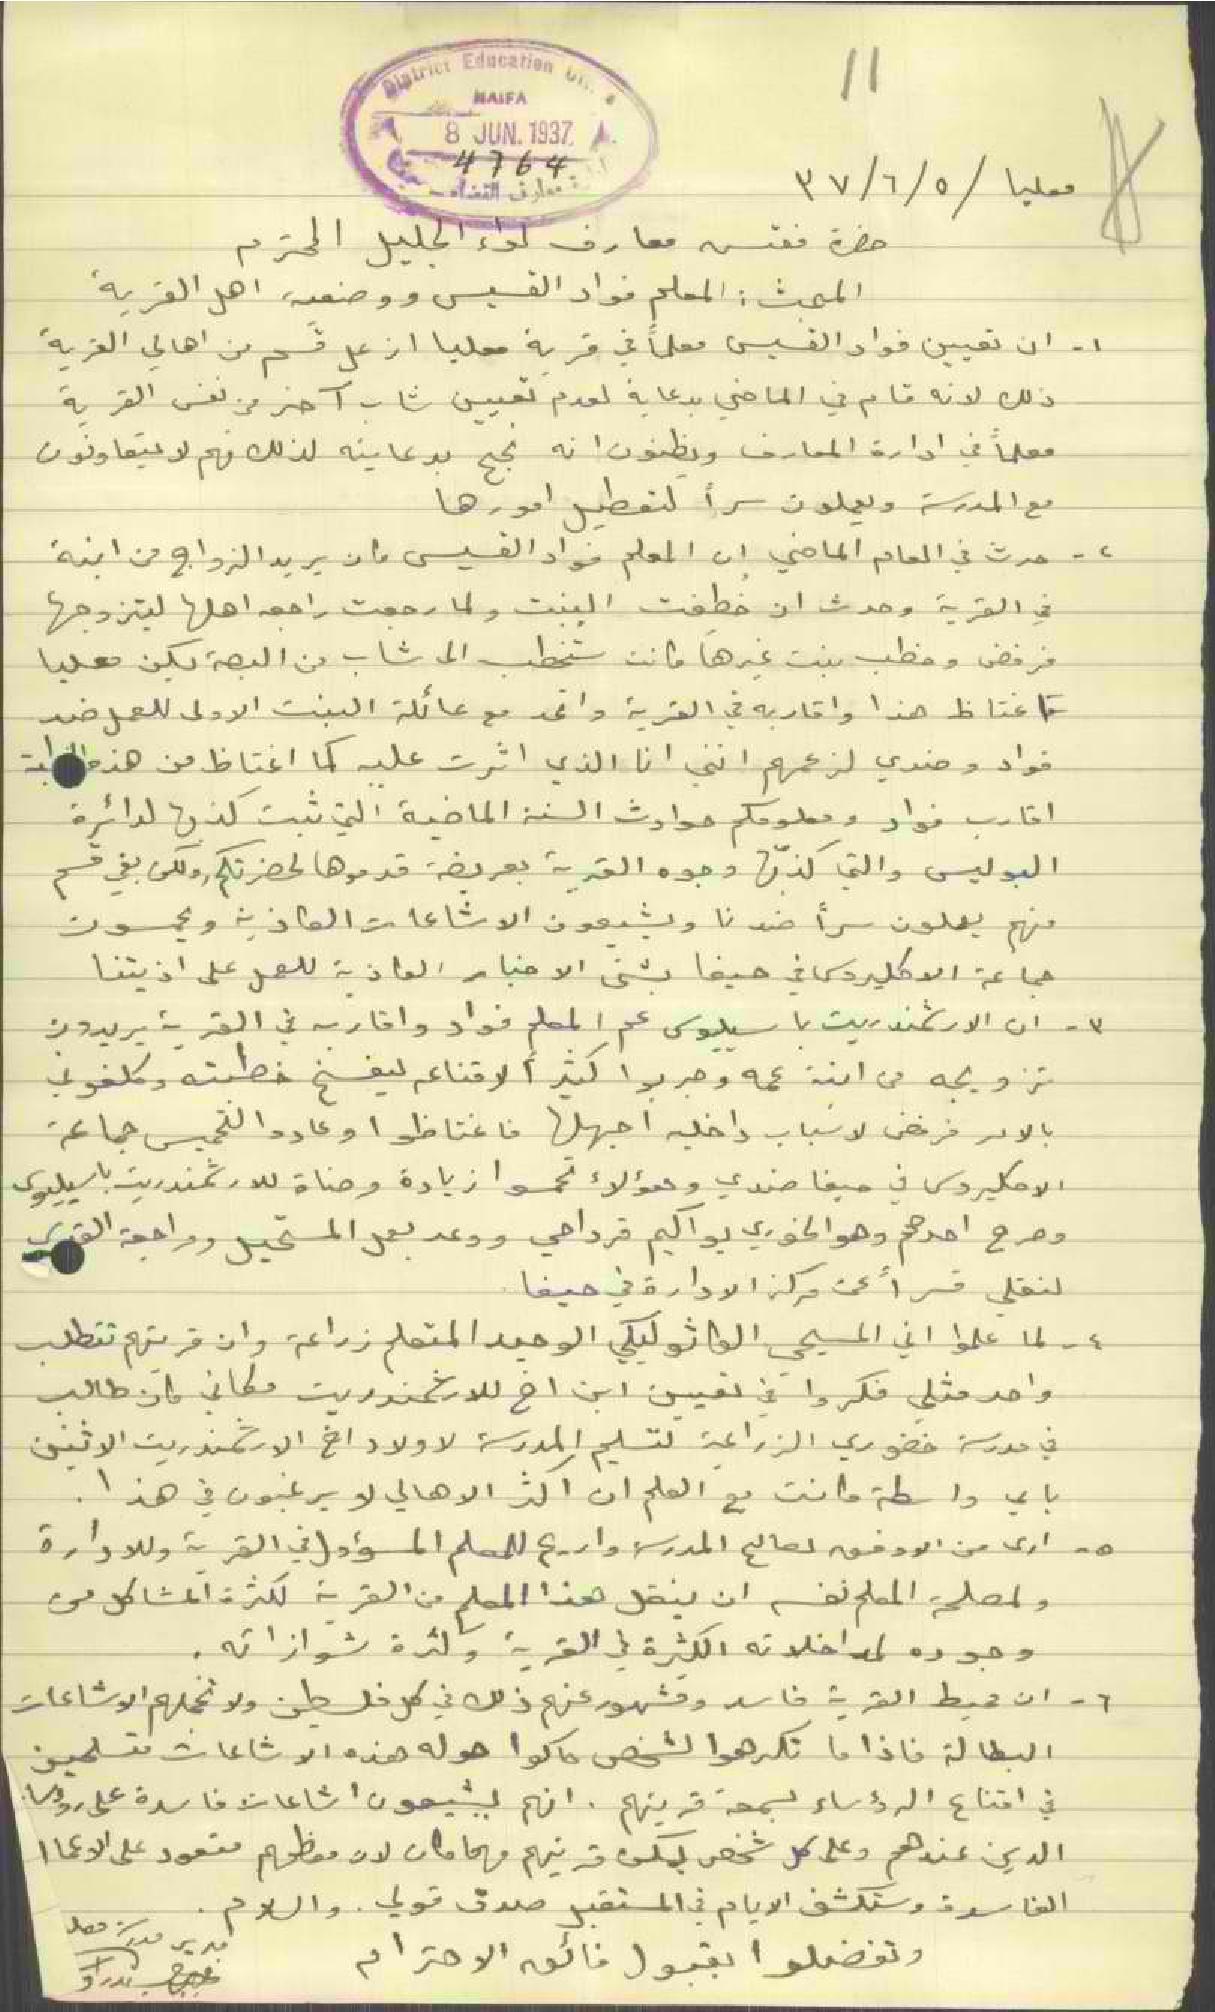 11
District Education
HAIFA
8 JUN. 1937
4764
معارف القضاء
معليا / ٣٧/٦/٥
حضرة مفتش معارف لواء الجليل المحترم
المبحث: المعلم فواد القسيس ووضعية اهل القرية
١- ان تعيين فواد القسيس معلماً في قرية معليا ازعل قسم من اهالي القرية
ذلك لانه قام في الماضي بدعاية لعدم تعيين شاب آخر من نفس القرية
معلماً في ادارة المعارف ويظنون انه نجح بدعايته لذلك فهم لا يتعاونون
مع المدرسة ويعملون سراً لتعطيل امورها
٢- حدث في العام الماضي ان المعلم فواد القسيس كان يريد الزواج من ابنة
في القرية وحدث ان خُطِفت البنت ولما رجعت راجعه اهلها ليتزوجها
فرفض وخطب بنت غيرها كانت ستخطب الى شاب من البصة يسكن معليا
فاغتاظ هذا واقاربه في القرية واتحد مع عائلة البنت الاولى للعمل ضد
فواد وضدي لزعمهم انني انا الذي اثرت عليه كما اغتاظ من هذه
اقارب فواد ومعلومكم حوادث السنة الماضية التي ثبت كذبها لدائرة
البوليس والتي كذبّها وجوه القرية بعريضة قدموها لحضرتكم، ولكن بقي قسم
منهم يعملون سراً ضدنا ويشيعون الاشاعات الكاذبة ويحمسون
جماعة الاكليروس في حيفا بشتى الاخبار الكاذبة للعمل على اذيتنا
٣- ان الارشمندريت باسيليوس عم المعلم فواد واقاربه في القرية يريدون
تزويجه من ابنة عمه وجربوا كثيراً لاقناعه ليفسخ خطبته وكلفوني
بالامر فرفض لاسباب داخليه اجهلها فاغتاظوا وعادوا لتحميس جماعة
الاكليروس في حيفا ضدي وهؤلاء تحمسوا زيادة وضناة للارشمندريت باسيليوس
وصرح احدهم وهو الخوري يواكيم قرداحي ووعد بعمل المستحيل ومراجعة
لنقلي قسراً عن مركز الادارة في حيفا.
٤- لما علموا اني المسيحي الكاثوليكي الوحيد المتعلم زراعة وان قريتهم تتطلب
واحد مثلي فكروا في تعيين ابن اخ للارشمندريت مكاني كان طالب
في مدرسة خضوري الزراعية لتسليم المدرسة لاولاد اخ الارشمندريت الاثنين
باي واسطة كانت مع العلم ان اكثر الاهالي لا يرغبون في هذا.
٥- ارى من الاوفق لصالح المدرسة واريح للمعلم المسؤول في القرية وللادارة
ولمصلحة المعلم نفسه ان ينقل هذا المعلم من القرية لكثرة المشاكل من
وجوده لمداخلاته الكثيرة في القرية وكثرة شوازاته.
٦- ان محيط القرية فاسد ومشهور عنهم ذلك في كل فلسطين ولا تخملهم الاشاعات
البطالة فاذا ما تكرهوا لشخص حاكوا حوله هذه الاشاعات متسلحين
في اقناع الرؤساء بسمعة قريتهم. انهم يشيعون اشاعات فاسدة على
الدين عندهم وعلى كل شخص يسكن قريتهم مهما كان لان معظمهم متعود على
الفاسدة وستكشف الايام في المستقبل صدق قولي. والسلام.
وتفضلوا بقبول فائق الاحترام
مدير مدرسة